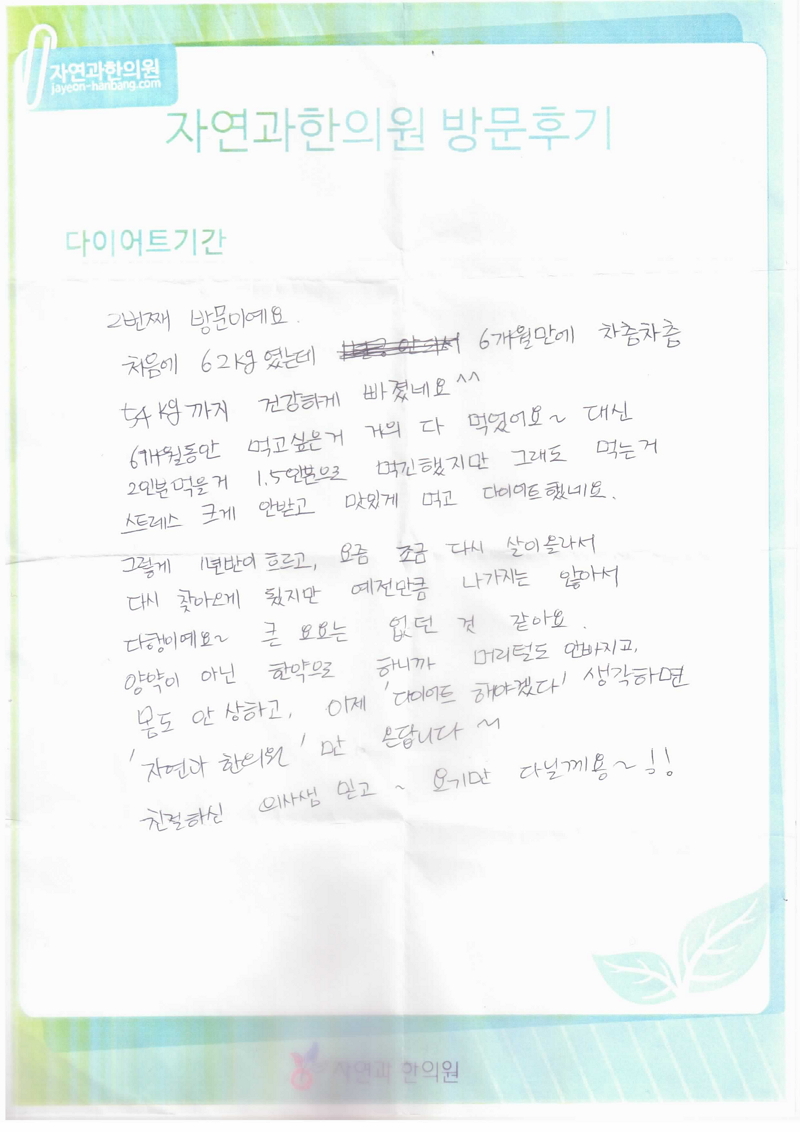 자연과한의원
jayeon-hanbang.com
자연과한의원 방문후기
다이어트기간
2번째 방문이예요.
처음에 62kg였는데 6개월만에 차츰차츰
54kg까지 건강하게 빠졌네요^^
6개월동안 먹고싶은거 거의 다 먹었어요~ 대신
2인분먹을거 1.5인분으로 먹긴했지만 그래도 먹는거
스트레스 크게 안받고 맛있게 먹고 다이어트했네요.
그렇게 1년반이 흐르고, 요즘 조금 다시 살이올라서
다시 찾아오게 됬지만 예전만큼 나가지는 않아서
다행이예요~ 큰 요요는 없던 것 같아요.
양약이 아닌 한약으로 하니까 머리털도 안빠지고,
몸도 안 상하고, 이제 '다이어트 해야겠다' 생각하면
'자연과 한의원' 만 믿습니다~
친절하신 의사쌤 믿고~ 요기만 다닐께용~!!
자연과 한의원